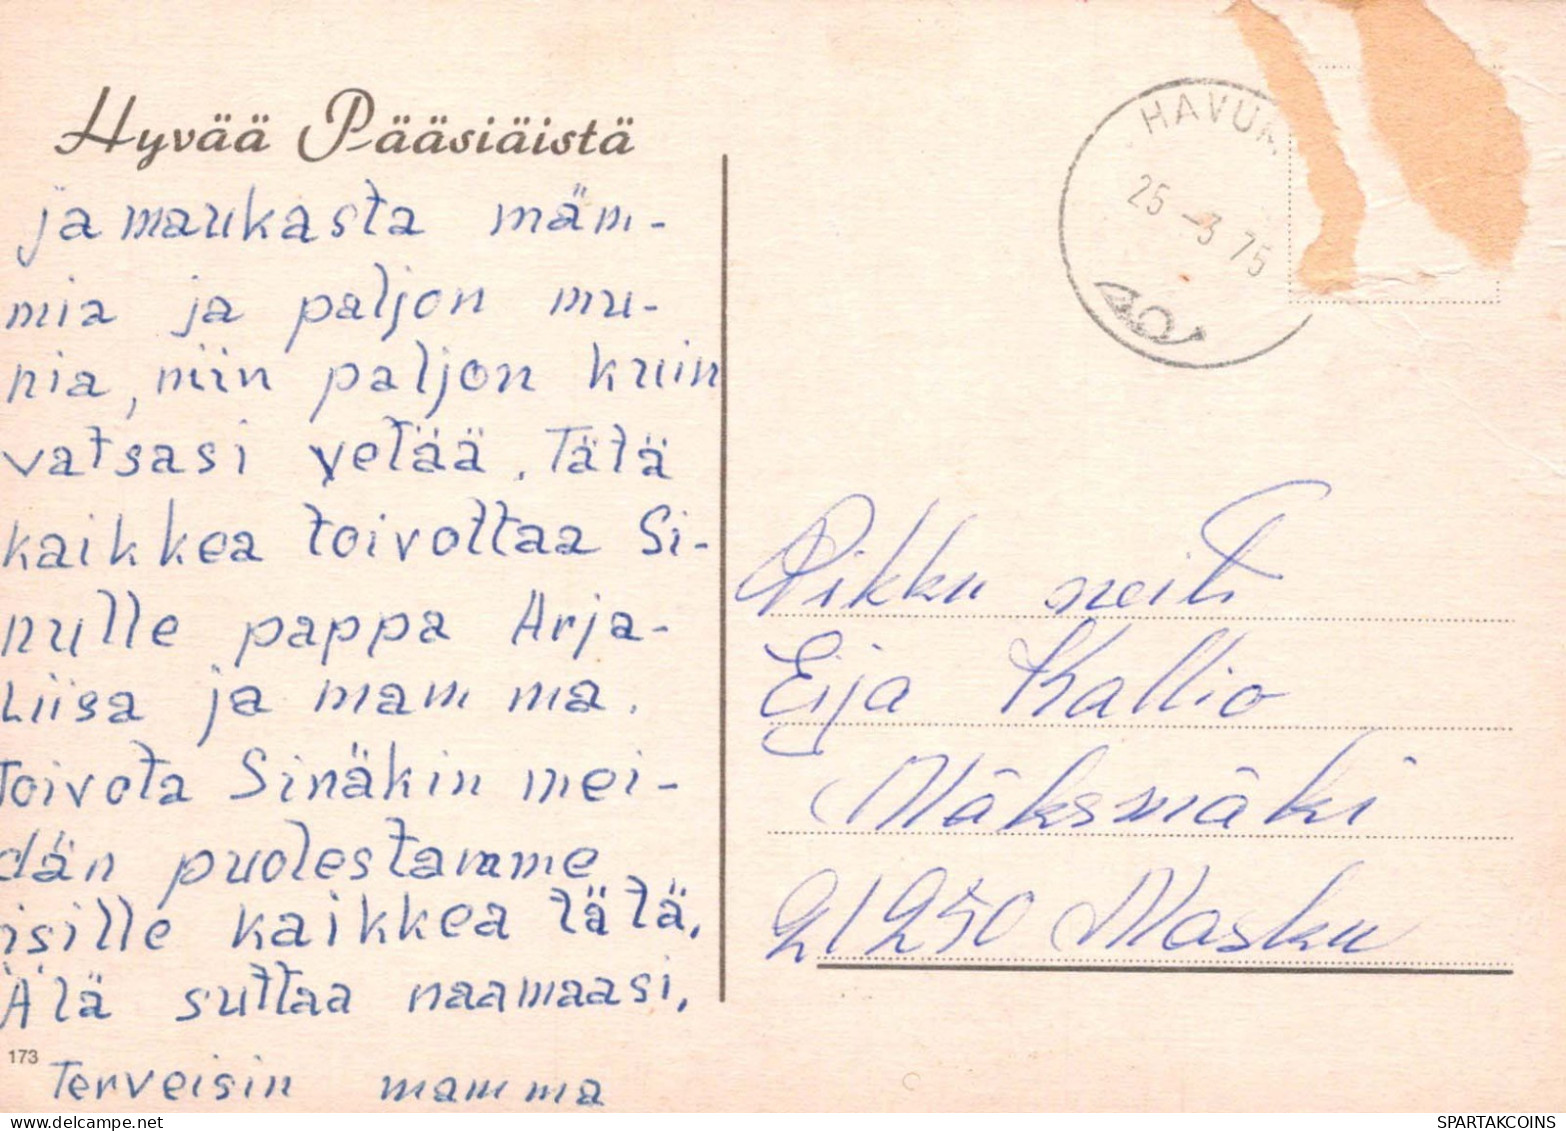 Hyvää Pääsiäistä
ja maukasta mäm-
miä ja paljon mu-
nia, niin paljon kuin
vatsasi vetää. Tätä
kaikkea toivottaa Si-
nulle pappa Arja-
Liisa ja mamma.
Toivota Sinäkin mei-
dän puolestamme
isille kaikkea tätä.
Älä suttaa naamaasi.
173
Terveisin mamma
25 -3 75
Pikku neiti
Eija Kallio
Mäksmäki
21250 Masku
www.delcampe.net
SPARTAKCOINS